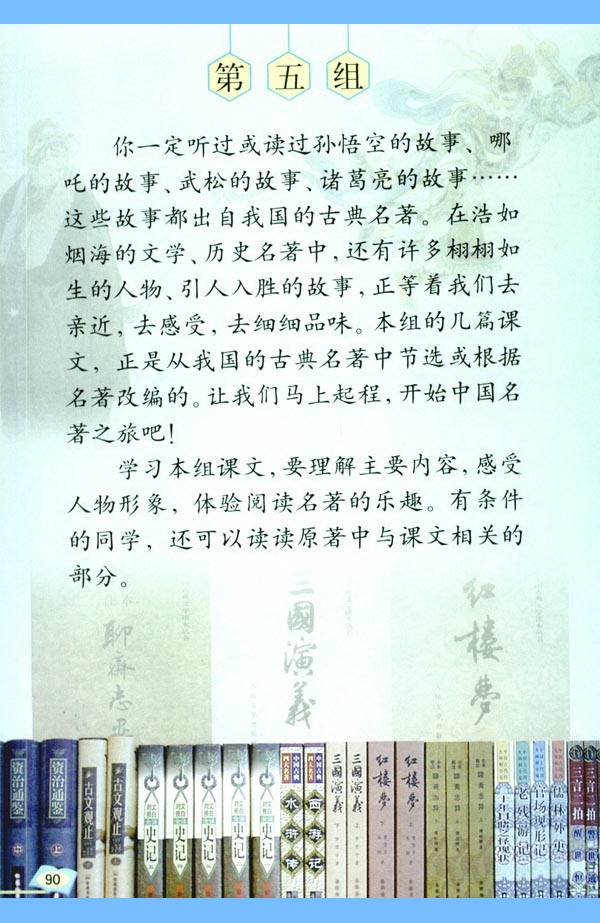 第五组
你一定听过或读过孙悟空的故事、哪
吒的故事、武松的故事、诸葛亮的故事……
这些故事都出自我国的古典名著。在浩如
烟海的文学、历史名著中，还有许多栩栩如
生的人物、引人入胜的故事，正等着我们去
亲近，去感受，去细细品味。本组的几篇课
文，正是从我国的古典名著中节选或根据
名著改编的。让我们马上起程，开始中国名
著之旅吧！
学习本组课文，要理解主要内容，感受
人物形象，体验阅读名著的乐趣。有条件
的同学，还可以读读原著中与课文相关的
部分。
聊斋志异
三國演義
红楼夢
资治通鉴
中
资治通鉴
上
古文观止
古文观止
史记
史记
史记
史记
史记
四大名著
中国古典
水浒传
四大名著
中国古典
西游记
三國演義
三國演義
红楼夢
红楼夢
聊斋志异
聊斋志异
二十年目睹之怪现状
老残游记
官场现形记
儒林外史
三言二拍
醒世恒
三言二拍
警世通
90